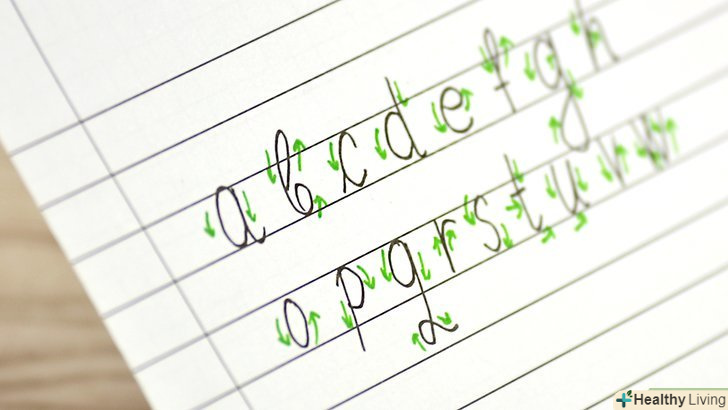 a b c d e f g h
o p q r s t u v w
Healthy Living